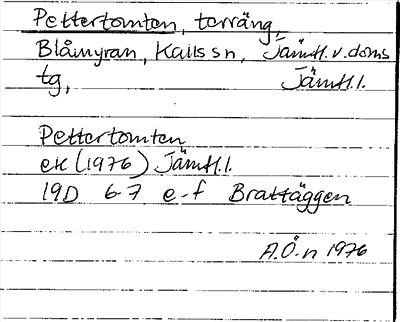 Pettertomten, terräng,
Blåmyran, Kalls sn, Jämtl. v. doms
tg, Jämtl.l.
Pettertomten
ek (1976) Jämtl.l.
19D 6-7 e-f Brattäggen
A.Ö-n 1976